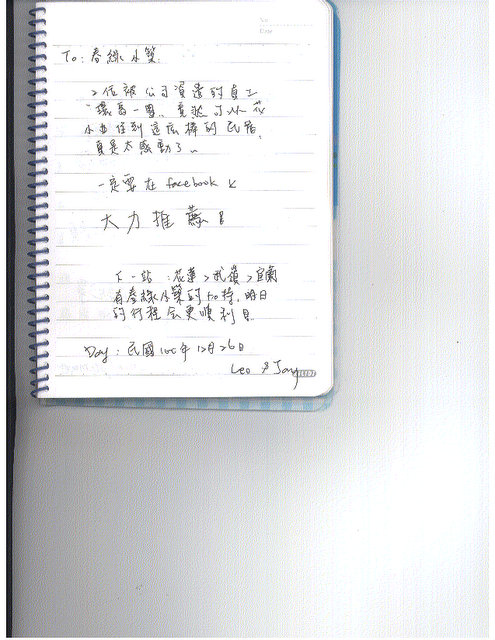 No
Date
To: 春綠小築
2位被公司資遣的員工
"環島一周", 竟然可以花
小錢住到這麼棒的民宿,
真是太感動了..
一定要在 facebook 上
大力推薦!!
下一站: 花蓮 > 武嶺 > 宜蘭
有春綠小築的加持, 明日
的行程會更順利!!
Day: 民國100年12月26日
Leo & Jay